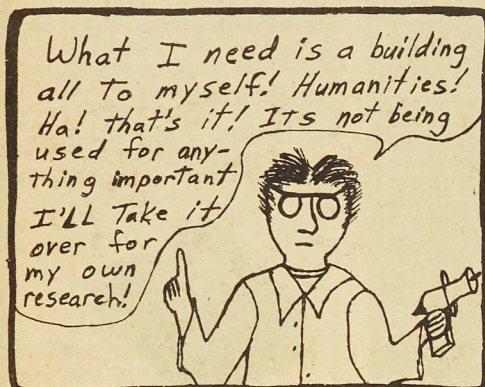 What I need is a building
all to myself! Humanities!
Ha! that's it! Its not being
used for any-
thing important
I'LL Take it
over for
my own
research!